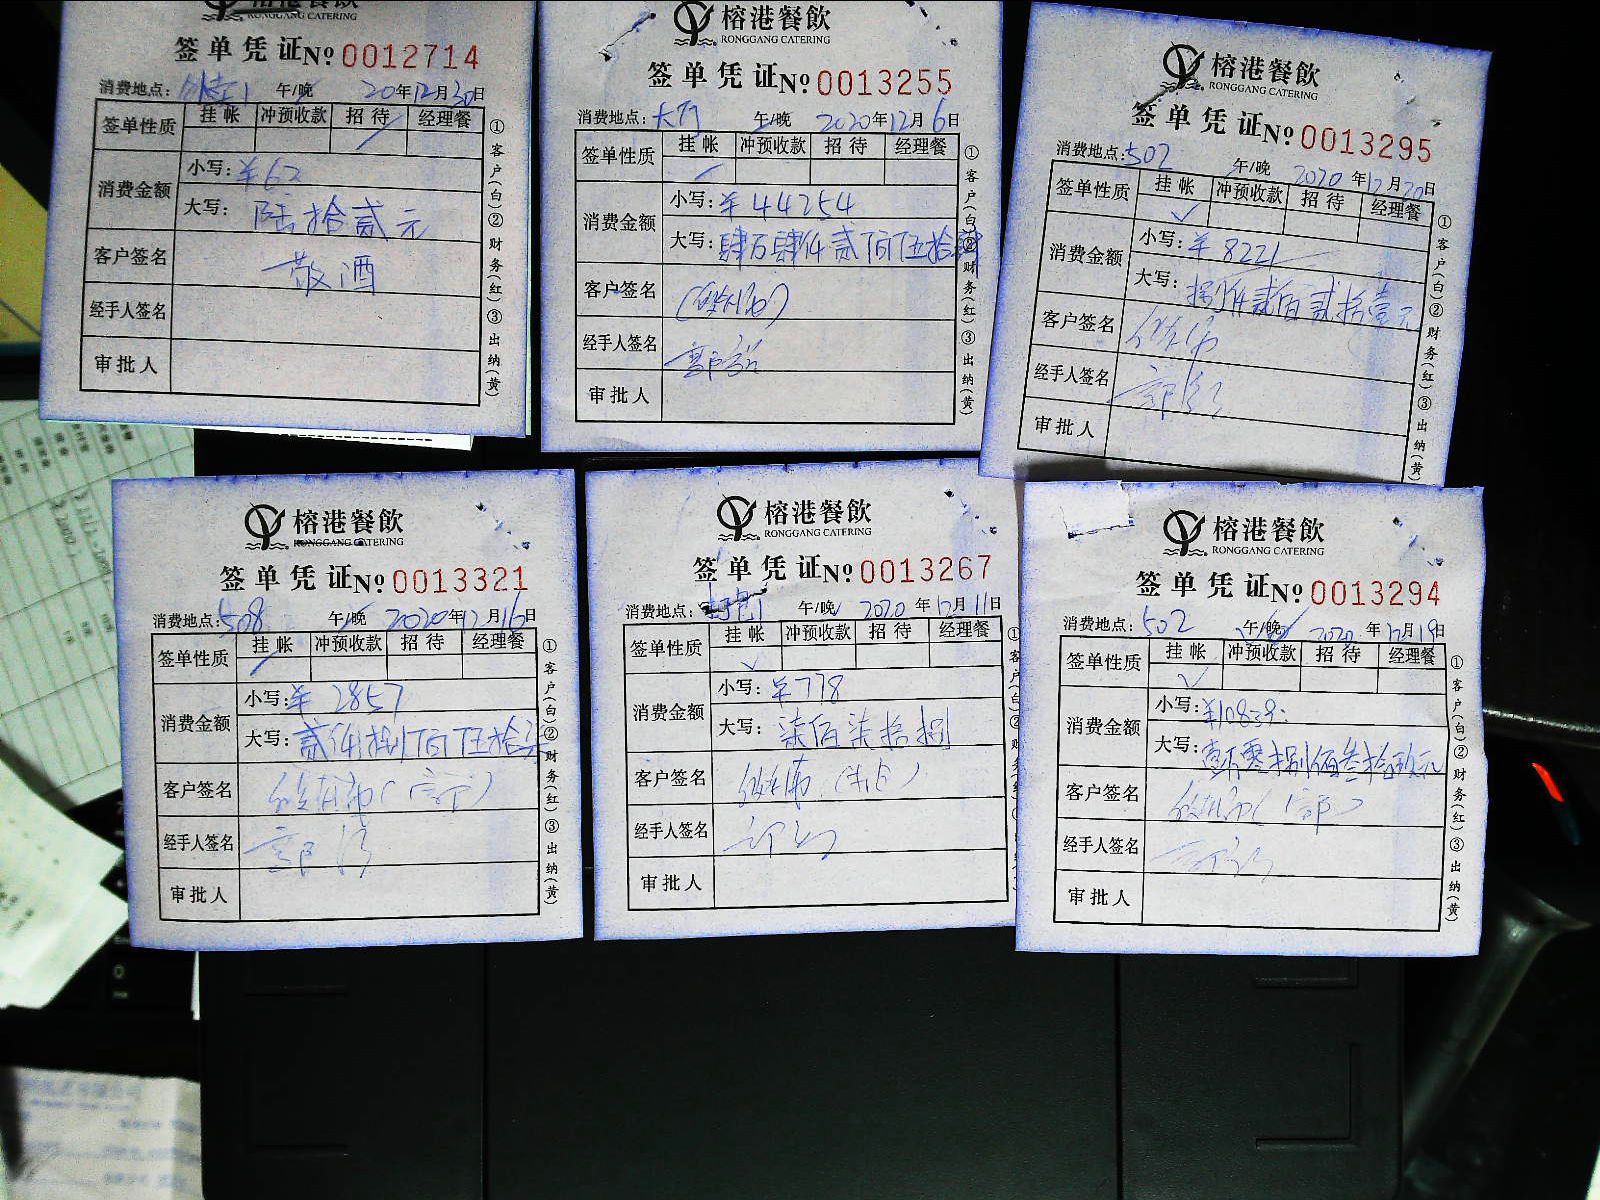 榕港餐飲
RONGGANG CATERING
签单凭证 № 0012714
消费地点: 午/晚 20年12月30日
签单性质 挂帐 冲预收款 招待 经理餐
消费金额 小写: ¥62
大写: 陆拾贰元
客户签名 敬酒
经手人签名
审批人
①客户(白)②财务(红)③出纳(黄)
榕港餐飲
RONGGANG CATERING
签单凭证 № 0013255
消费地点: 大厅 午/晚 2020年12月6日
签单性质 挂帐 冲预收款 招待 经理餐
消费金额 小写: ¥44254
大写: 肆万肆仟贰佰伍拾肆
客户签名
经手人签名
审批人
①客户(白)②财务(红)③出纳(黄)
榕港餐飲
RONGGANG CATERING
签单凭证 № 0013295
消费地点: 502 午/晚 2020年12月20日
签单性质 挂帐 冲预收款 招待 经理餐
消费金额 小写: ¥8221
大写: 捌仟贰佰贰拾壹元
客户签名
经手人签名
审批人
①客户(白)②财务(红)③出纳(黄)
榕港餐飲
RONGGANG CATERING
签单凭证 № 0013321
消费地点: 508 午/晚 2020年12月16日
签单性质 挂帐 冲预收款 招待 经理餐
消费金额 小写: ¥2857
大写: 贰仟捌佰伍拾
客户签名
经手人签名
审批人
①客户(白)②财务(红)③出纳(黄)
榕港餐飲
RONGGANG CATERING
签单凭证 № 0013267
消费地点: 午/晚 2020年12月11日
签单性质 挂帐 冲预收款 招待 经理餐
消费金额 小写: ¥778
大写: 柒佰柒拾捌
客户签名
经手人签名
审批人
榕港餐飲
RONGGANG CATERING
签单凭证 № 0013294
消费地点: 502 午/晚 2020年12月19日
签单性质 挂帐 冲预收款 招待 经理餐
消费金额 小写: ¥10839
大写: 壹万零捌佰叁拾玖元
客户签名
经手人签名
审批人
①客户(白)②财务(红)③出纳(黄)